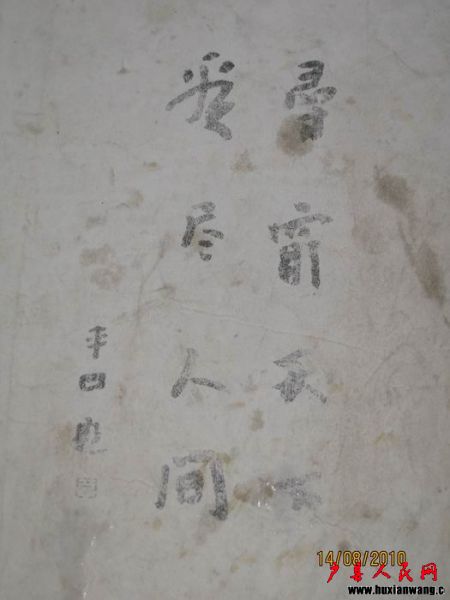 寻天下
爱尽人间
平凹
14/08/2010
户县人民网
www.huxianwang.c